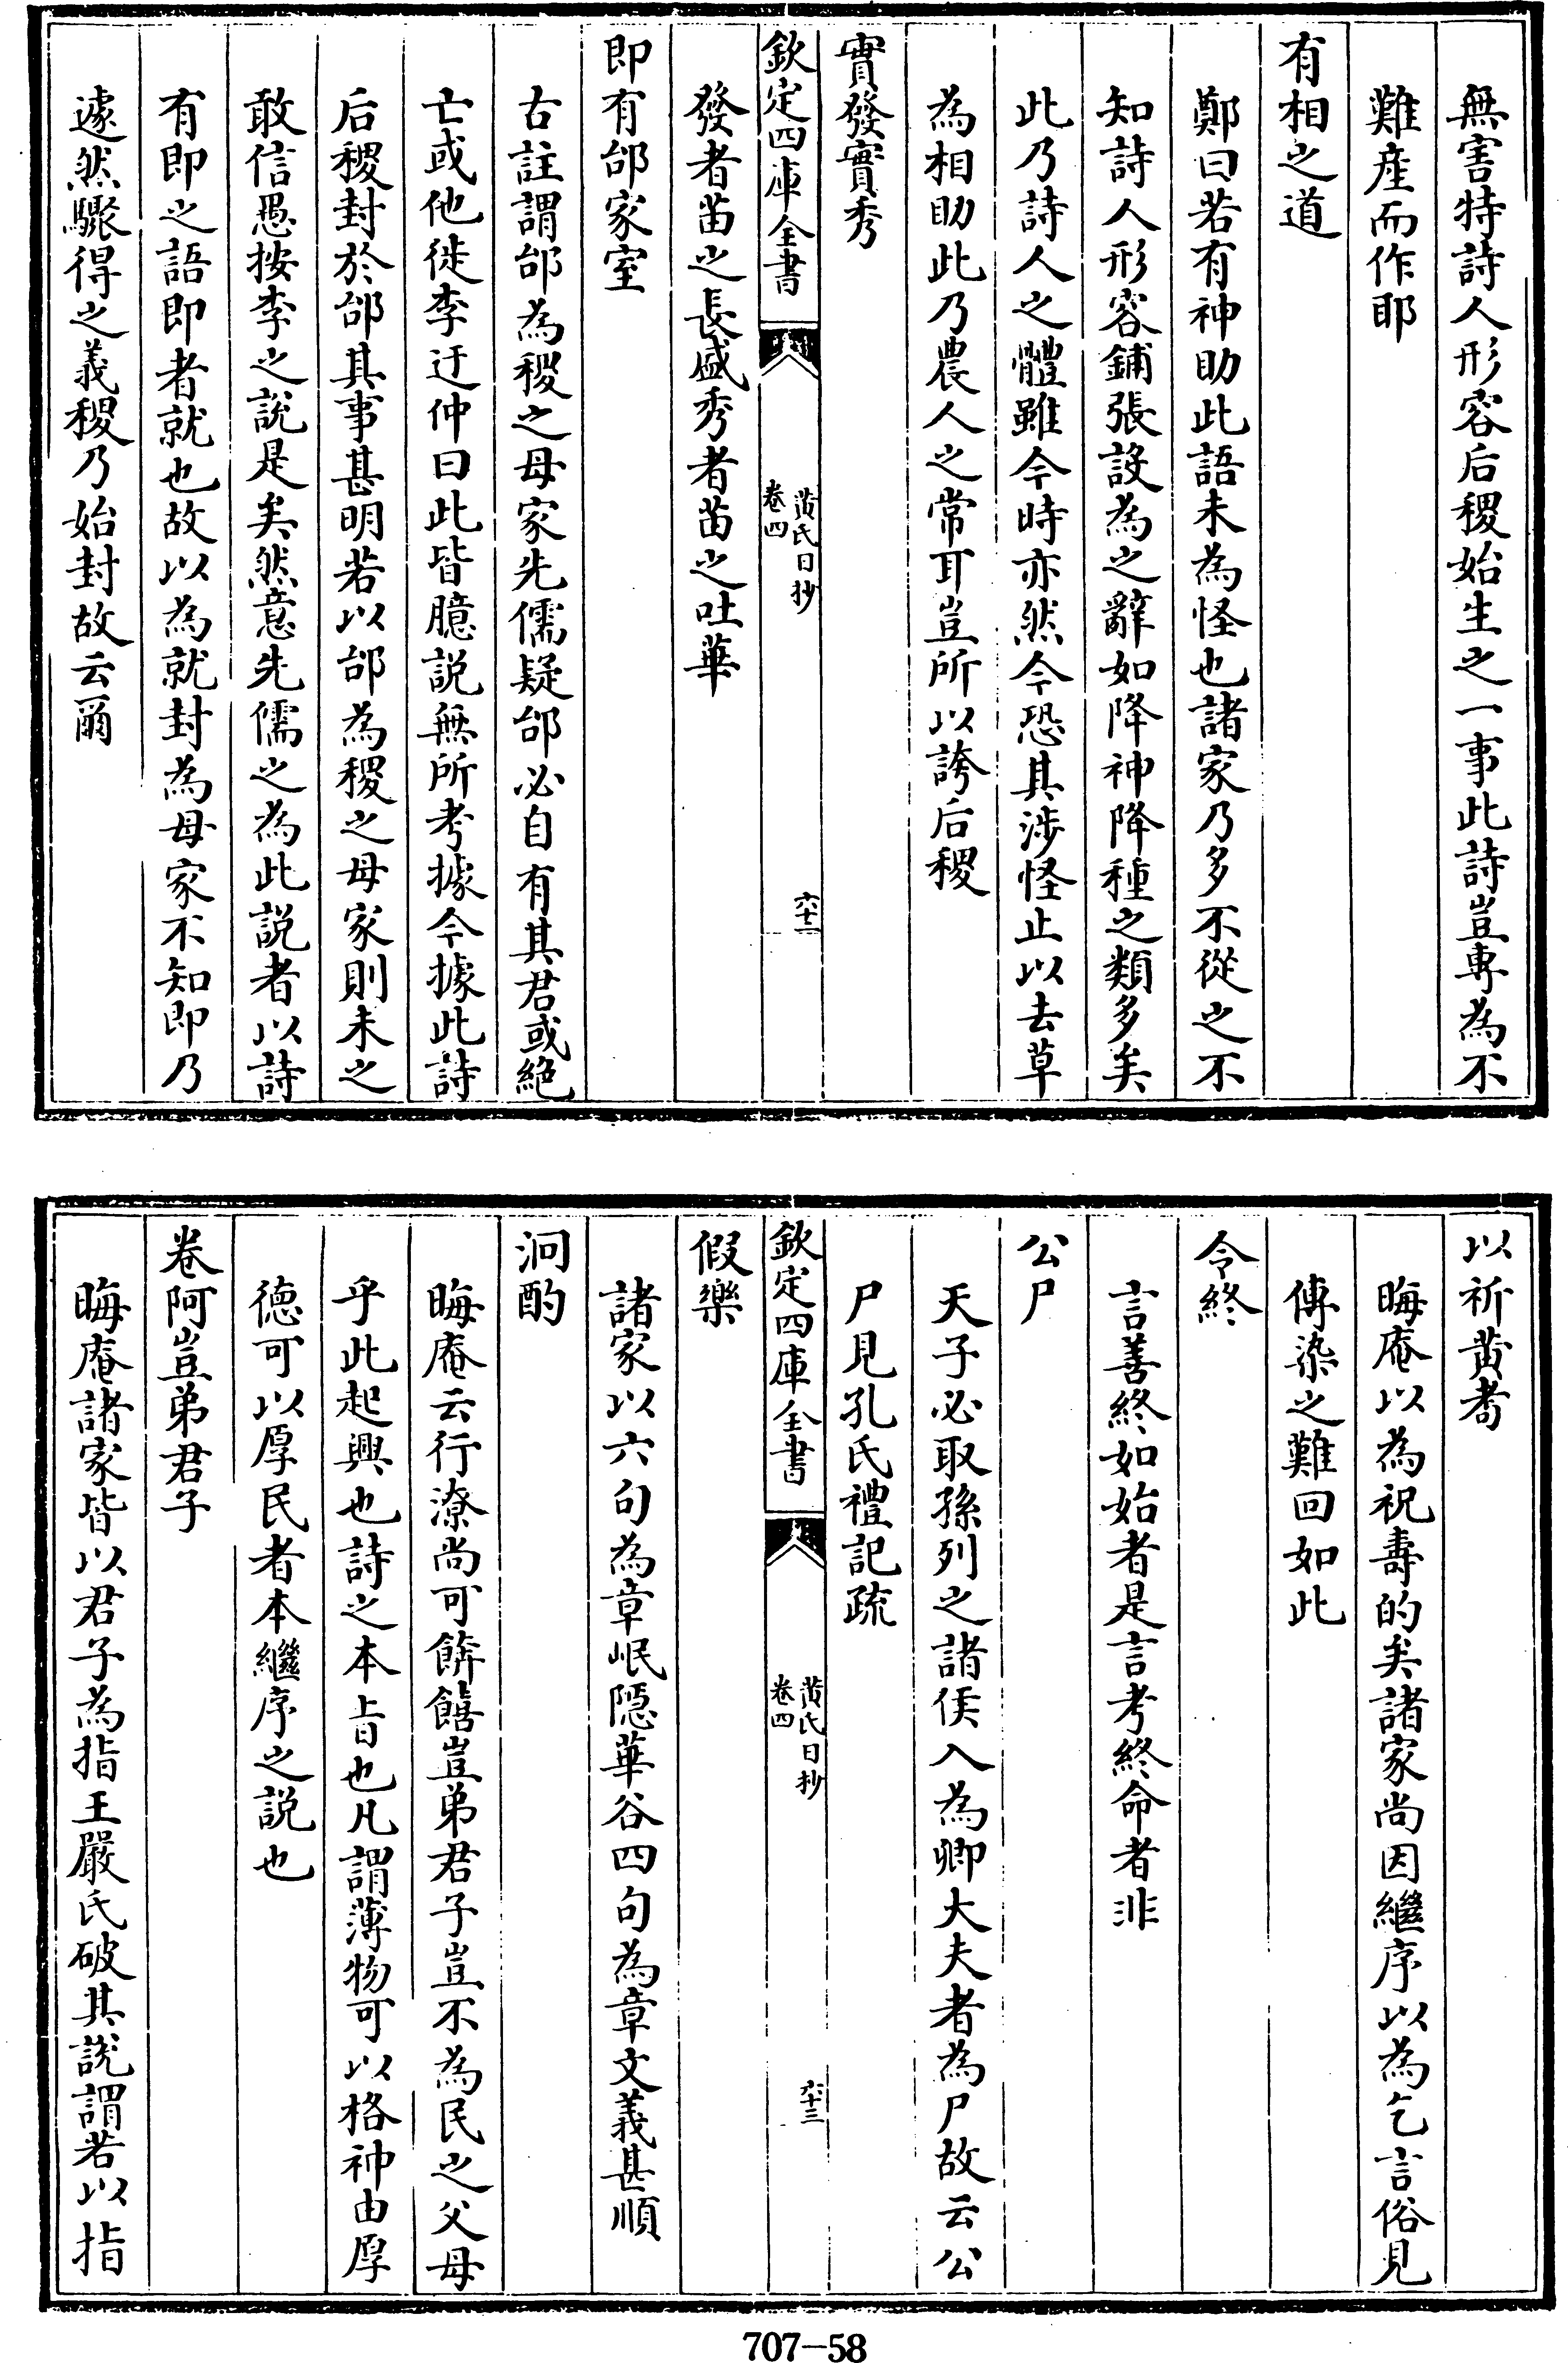 無害特詩人形容后稷始生之一事此詩豈專為不
難産而作耶
有相之道
鄭曰若有神助此語未為怪也諸家乃多不從之不
知詩人形容鋪張設為之辭如降神降種之類多矣
此乃詩人之體雖今時亦然今恐其涉怪止以去草
為相助此乃農人之常耳豈所以誇后稷
實發實秀
欽定四庫全書
黄氏日抄
卷四
六十二
發者苗之長盛秀者苗之吐華
即有邰家室
古註謂邰為稷之母家先儒疑邰必自有其君或絶
亡或他徙李迂仲曰此皆臆説無所考據今據此詩
后稷封於邰其事甚明若以邰為稷之母家則未之
敢信愚按李之說是矣然意先儒之為此説者以詩
有即之語即者就也故以為就封為母家不知即乃
遽然驟得之義稷乃始封故云爾
以祈黄耉
晦庵以為祝壽的矣諸家尚因繼序以為乞言俗見
傳染之難回如此
令終
言善終如始者是言考終命者非
公尸
天子必取孫列之諸侯入為卿大夫者為尸故云公
尸見孔氏禮記疏
欽定四庫全書
黄氏日抄
卷四
六十三
假樂
諸家以六句為章岷隠華谷四句為章文義甚順
泂酌
晦庵云行潦尚可餴饎豈弟君子豈不為民之父母
乎此起興也詩之本㫖也凡謂薄物可以格神由厚
德可以厚民者本繼序之説也
卷阿豈弟君子
晦庵諸家皆以君子為指王嚴氏破其說謂若以指
707-58